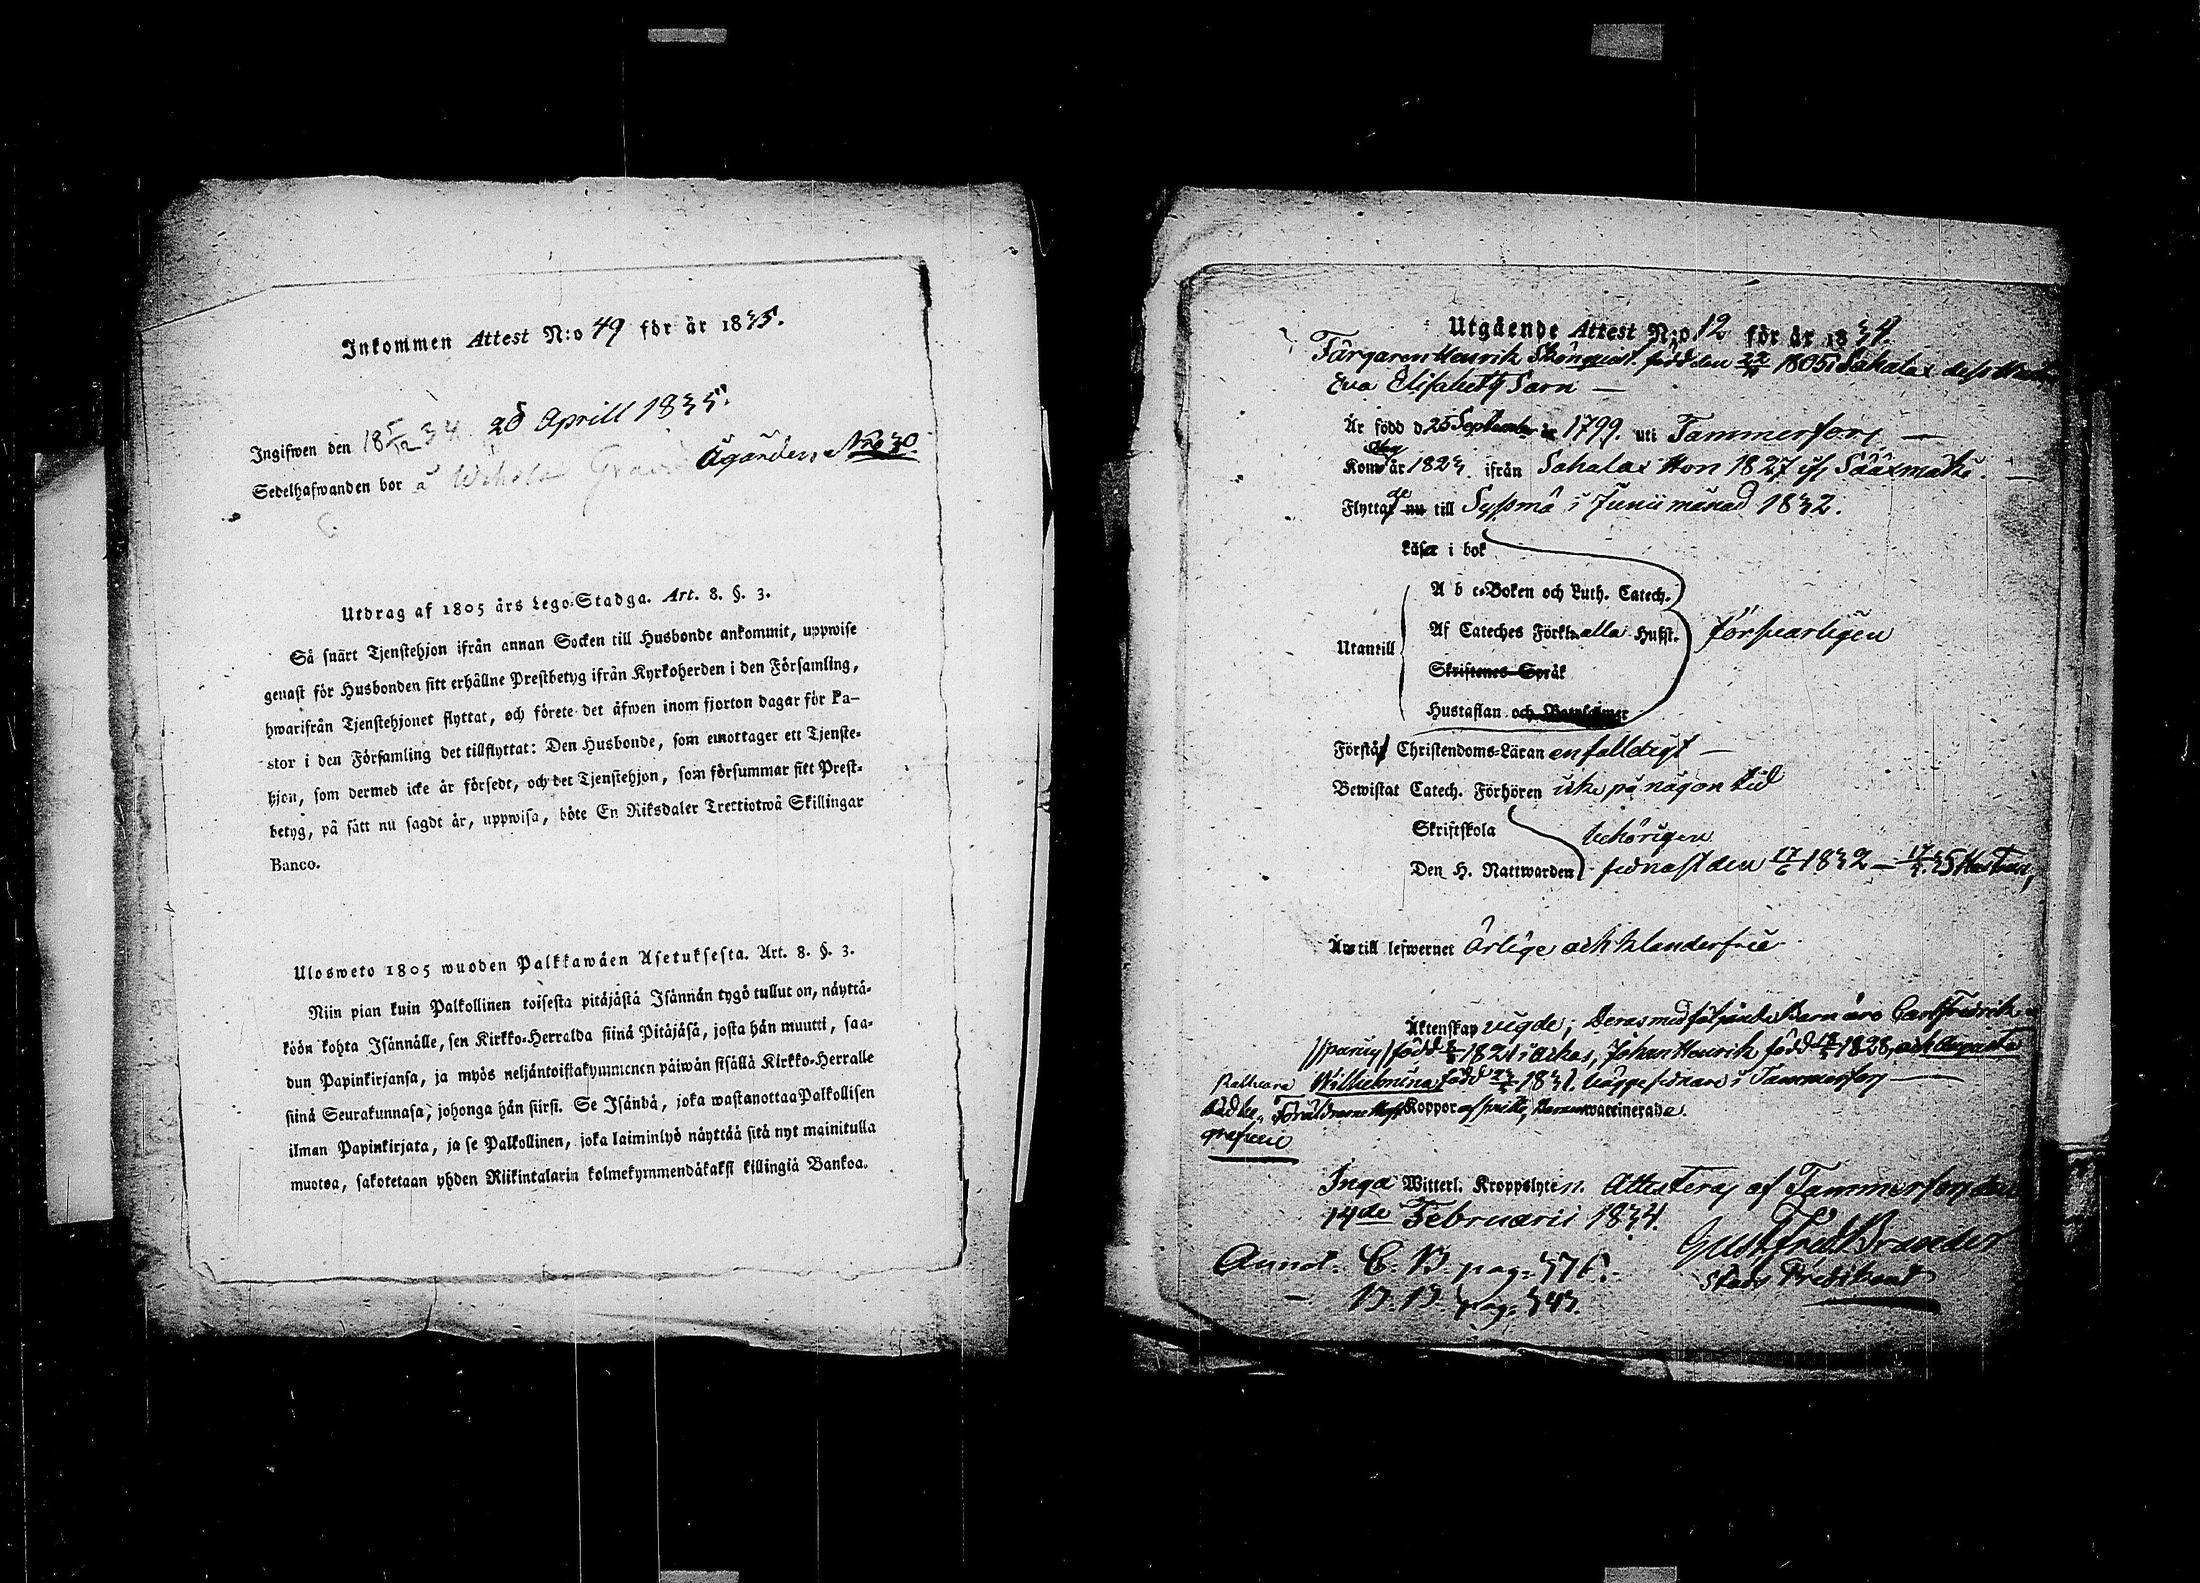 Inkommen Attest N:o 49 för år 1835.
Ingifwen den 18 5/12 34. 28 Aprill 1835.
Sedelhafwanden bor å Ägandes No 30
Utdrag af 1805 års Lego-Stadga. Art. 8. §. 3.
Så snart Tjenstehjon ifrån annan Socken till Husbonde ankommit, uppwise
genast för Husbonden sitt erhållne Prestbetyg ifrån Kyrkoherden i den Församling,
hwarifrån Tjenstehjonet flyttat, och förete det äfwen inom fjorton dagar för Pa-
stor i den Församling det tillflyttat: Den Husbonde, som emottager ett Tjenste-
hjon, som dermed icke är försedt, och det Tjenstehjon, som försummar sitt Prest-
betyg, på sätt nu sagdt är, uppwisa, böte En Riksdaler Trettiotwå Skillingar
Banco.
Ulosweto 1805 wuoden Palkkawäen Asetuksesta. Art. 8. §. 3.
Niin pian kuin Palkollinen toisesta pitäjästä Isännän tygö tullut on, näyttä-
köön kohta Isännälle, sen Kirkko-Herralda siinä Pitäjäsä, josta hän muutti, saa-
dun Papinkirjansa, ja myös neljäntoistakymmenen päiwän sisällä Kirkko-Herralle
siinä Seurakunnasa, johonga hän siirsi. Se Isändä, joka wastanottaa Palkollisen
ilman Papinkirjata, ja se Palkollinen, joka laiminlyö näyttää sitä nyt mainitulla
muotoa, sakotetaan yhden Riikintalarin kolmekymmendäkaksi killingiä Bankoa.
Utgående Attest N:o 12 för år 1834.
Färgaren Henrik född den 22/11 1805 i Sahalax dess
Eva Elisabeth Sarn —
Är född d 25 September år 1799. uti Tammerfors —
Kom år 1823 ifrån Sahalax Hon 1827 ifr Sääxmäki. —
Flyttade nu till Sysmä i Junii månad 1832.
Läser i bok
A b c-Boken och Luth. Catech.
Af Cateches Förkl. alla Hufst. försvarligen
Utantill
Skriftenes Språk
Hustaflan och
Förstår Christendoms-Läran enfaldigt —
Bewistat Catech. Förhören icke på någon tid
Skriftskola behörigen
Den H. Nattwarden sednast den 17/6 1832 —
Äro till lefwernet ärlige och klanderfrie
Äktenskap vigde; Deras medföljande Barn äro Carl Fredrik
född 1821 i Johan Henrik född 1828, och Augusta
Wilhelmina född 1831. bägge sednare i Tammerfors —
Föräldrarne haft Koppor Barnen waccinerade.
Inga Witterl. Kroppslyten. Attesteras af Tammerfors den
14de Februarii 1834.
Gust. Fred. Brander
Stads Predikant
Annot. C. B. pag. 376.
— B. B. pag. 343.